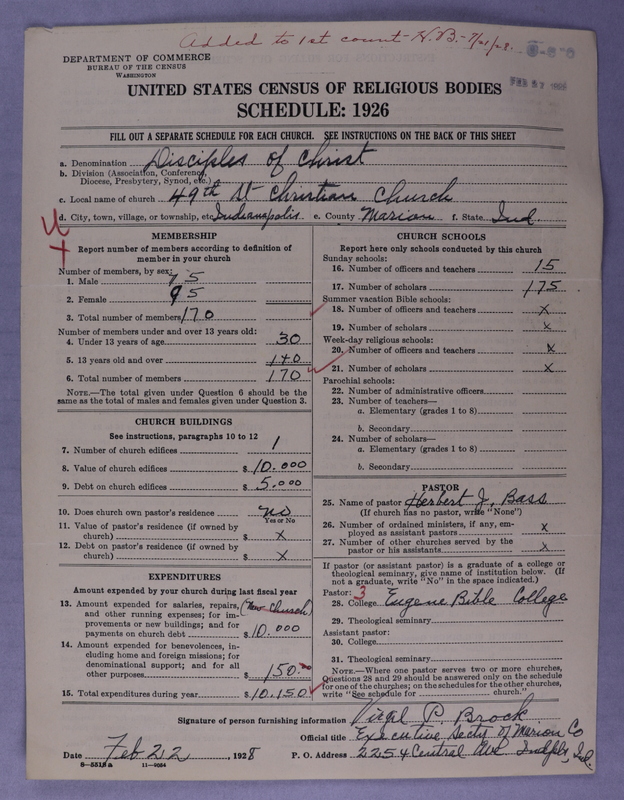 Added to 1st count H.B. 7/21/28.
DEPARTMENT OF COMMERCE
BUREAU OF THE CENSUS
WASHINGTON
UNITED STATES CENSUS OF RELIGIOUS BODIES
SCHEDULE: 1926
FILL OUT A SEPARATE SCHEDULE FOR EACH CHURCH. SEE INSTRUCTIONS ON THE BACK OF THIS SHEET
a. Denomination Disciples of Christ
b. Division (Association, Conference, Diocese, Presbytery, Synod, etc.)
c. Local name of church 49th St Christian Church
d. City, town, village, or township, etc. Indianapolis e. County Marion f. State Ind.
MEMBERSHIP
Report number of members according to definition of
member in your church
Number of members, by sex:
1. Male 75
2. Female 95
3. Total number of members 170
Number of members under and over 13 years old:
4. Under 13 years of age 30
5. 13 years old and over 140
6. Total number of members 170
NOTE.—The total given under Question 6 should be
same as the total of males and females given under Question 3.
CHURCH BUILDINGS
See instructions, paragraphs 10 to 12
7. Number of church edifices 1
8. Value of church edifices $ 10.000
9. Debt on church edifices $ 5.000
10. Does church own pastor's residence? no
Yes or No
11. Value of pastor's residence (if owned by
church) $ x
12. Debt on pastor's residence (if owned by
church) $ x
EXPENDITURES
Amount expended by your church during last fiscal year
13. Amount expended for salaries, repairs, (New Church)
and other running expenses; for im-
provements or new buildings; and for
payments on church debt $ 10.000
14. Amount expended for benevolences, in-
cluding home and foreign missions; for
denominational support; and for all
other purposes $ 150.00
15. Total expenditures during year $ 10.150
CHURCH SCHOOLS
Report here only schools conducted by this church
Sunday schools:
16. Number of officers and teachers 15
17. Number of scholars 175
Summer vacation Bible schools:
18. Number of officers and teachers x
19. Number of scholars x
Week-day religious schools:
20. Number of officers and teachers x
21. Number of scholars x
Parochial schools:
22. Number of administrative officers
23. Number of teachers—
a. Elementary (grades 1 to 8)
b. Secondary
24. Number of scholars—
a. Elementary (grades 1 to 8)
b. Secondary
PASTOR
25. Name of pastor Herbert J. Bass
(If church has no pastor, write "None")
26. Number of ordained ministers, if any, em-
ployed as assistant pastors x
27. Number of other churches served by the
pastor or his assistants x
If pastor (or assistant pastor) is a graduate of a college or
theological seminary, give name of institution below. (If
not a graduate, write "No" in the space indicated.)
Pastor: 3
28. College Eugene Bible College
29. Theological seminary
Assistant pastor:
30. College
31. Theological seminary
NOTE.—Where one pastor serves two or more churches,
Questions 28 and 29 should be answered only on the schedule
for one of the churches; on the schedules for the other churches,
write "See schedule for church."
Signature of person furnishing information Virgil P. Brock
Official title Executive Secty of Marion Co
Date Feb 22, 1928 P. O. Address 2254 Central Ave Indpls, Ind.
8-5518a 11-9084